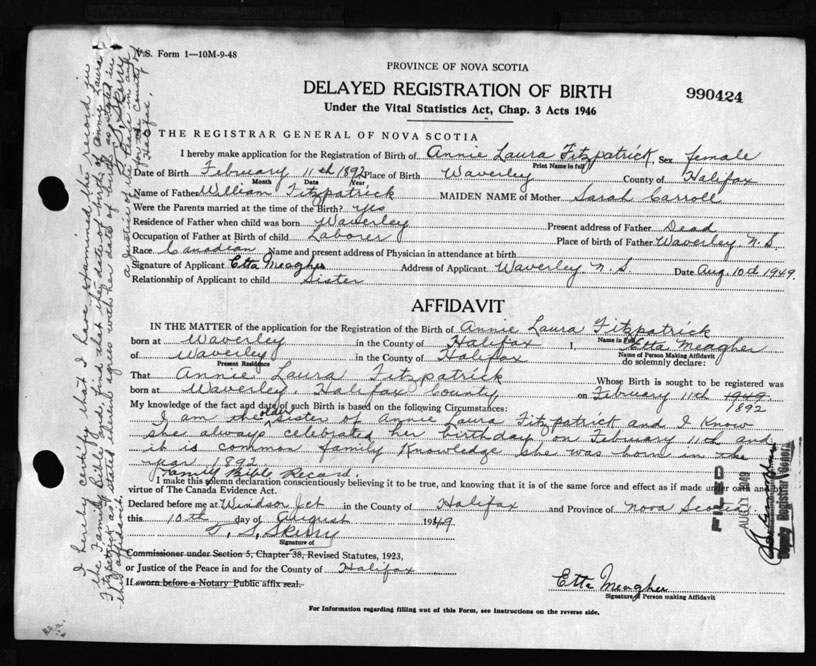 V.S. Form 1—10M-9-48
PROVINCE OF NOVA SCOTIA
DELAYED REGISTRATION OF BIRTH
990424
Under the Vital Statistics Act, Chap. 3 Acts 1946
THE REGISTRAR GENERAL OF NOVA SCOTIA
I hereby make application for the Registration of Birth of Annie Laura Fitzpatrick, Sex female
Print Name in full
Date of Birth February 11th 1892 Place of Birth Waverley County of Halifax
Month Date Year
Name of Father William Fitzpatrick MAIDEN NAME of Mother Sarah Carroll
Were the Parents married at the time of the Birth? yes
Residence of Father when child was born Waverley Present address of Father Dead
Occupation of Father at Birth of child Laborer Place of birth of Father Waverley N.S.
Race Canadian Name and present address of Physician in attendance at birth
Signature of Applicant Etta Meagher Address of Applicant Waverley N.S. Date Aug. 10th 1949.
Relationship of Applicant to child Sister
AFFIDAVIT
IN THE MATTER of the application for the Registration of the Birth of Annie Laura Fitzpatrick
Name in Full
born at Waverley in the County of Halifax I, Etta Meagher
Name of Person Making Affidavit
of Waverley in the County of Halifax do solemnly declare:
Present Residence
That Annie Laura Fitzpatrick Whose Birth is sought to be registered was
born at Waverley, Halifax County on February 11th 1949.
1892
My knowledge of the fact and date of such Birth is based on the following Circumstances:
I am the older sister of Annie Laura Fitzpatrick and I know
she always celebrated her birthday on February 11th and
it is common family knowledge she was born in the
year 1892.
Family Bible Record.
I make this solemn declaration conscientiously believing it to be true, and knowing that it is of the same force and effect as if made under oath and by
virtue of The Canada Evidence Act.
Declared before me at Windsor Jct in the County of Halifax and Province of Nova Scotia
this 10th day of August 1949
T. S. Skerry
Signature of
Commissioner under Section 5, Chapter 38, Revised Statutes, 1923,
or Justice of the Peace in and for the County of Halifax
If sworn before a Notary Public affix seal.
Etta Meagher
Signature of Person making Affidavit
For Information regarding filling out of this Form, see Instructions on the reverse side.
I hereby certify that I have examined the record in
the Family Bible and find that the date of birth of Annie Laura
Fitzpatrick as stated therein agrees with her date of birth as stated in
this affidavit.
T. S. Skerry
A Justice of the Peace in and
for the County of
Halifax.
FILED
AUG 1949
Deputy Registrar General